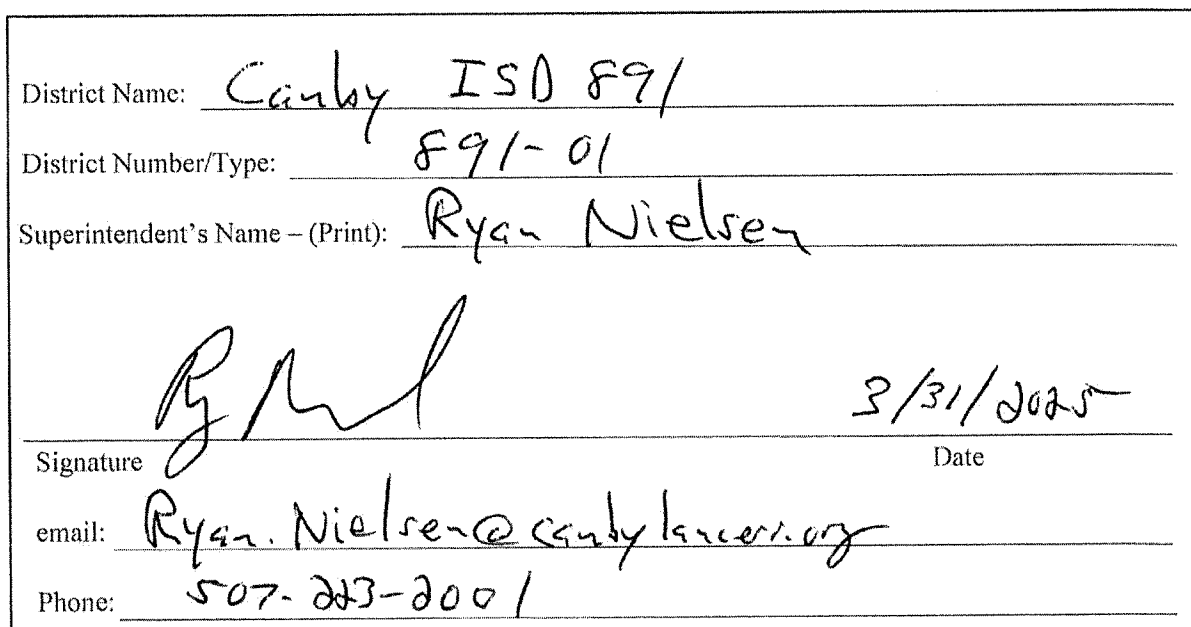 District Name: Canby ISD 891
District Number/Type: 891-01
Superintendent's Name – (Print): Ryan Nielsen
3/31/2025
Signature Date
email: Ryan.Nielsen@canbylancers.org
Phone: 507-223-2001